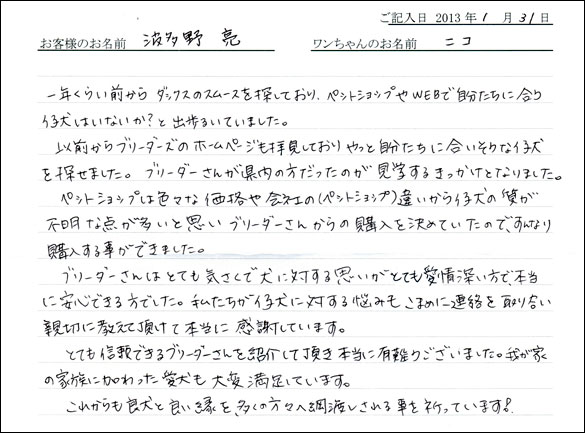 ご記入日 2013年 1 月 31 日
お客様のお名前 波多野 亮 ワンちゃんのお名前 ニコ
一年くらい前から ダックスのスムースを探しており、ペットショップやWEBで自分たちに合う
仔犬はいないか?と出歩るいていました。
以前からブリーダーズのホームページも拝見しており やっと自分たちに合いそうな仔犬
を探せました。ブリーダーさんが県内の方だったのが見学するきっかけとなりました。
ペットショップは色々な価格や会社の(ペットショップ)違いから仔犬の質が
不明な点が多いと思いブリーダーさんからの購入を決めていたので、すんなり
購入する事ができました。
ブリーダーさんはとても気さくで犬に対する思いがとても愛情深い方で、本当
に安心できる方でした。私たちが仔犬に対する悩みもこまめに連絡を取り合い
親切に教えて頂けて本当に感謝しています。
とても信頼できるブリーダーさんを紹介して頂き本当に有難うございました。我が家
の家族に加わった愛犬も大変満足しています。
これからも良犬と良い縁を、多くの方々へ橋渡しされる事を祈っています!